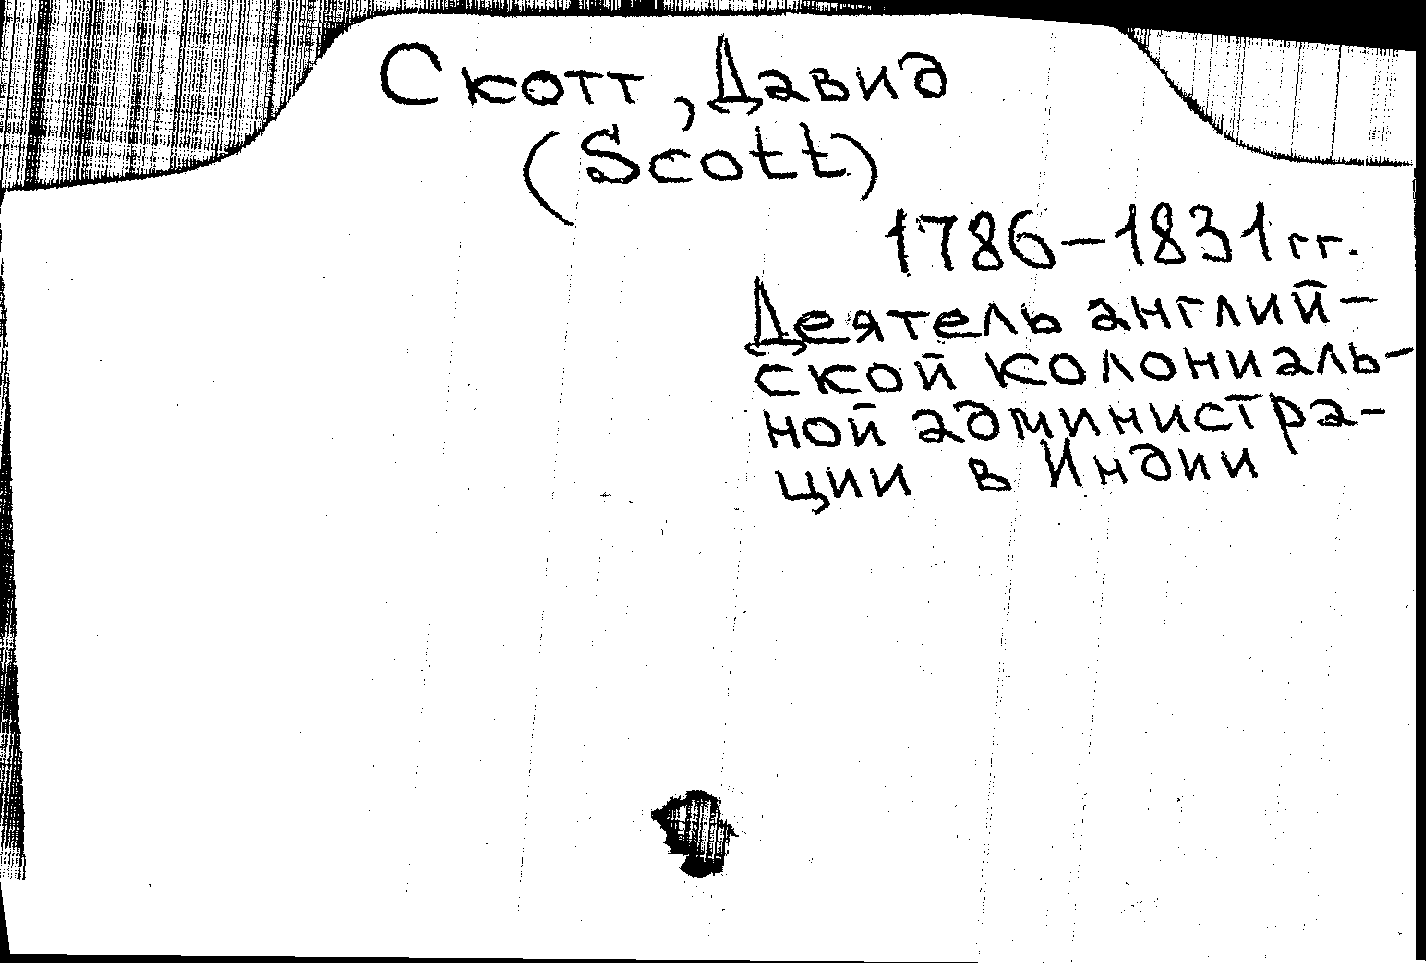 Скотт, Давид
(Scott)
1786–1831 гг.
Деятель англий-
ской колониаль-
ной администра-
ции в Индии